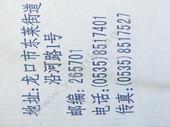 地址:龙口市东莱街道
沿河路1号
邮编: 265701
电话:(0535)8517401
传真:(0535)8517527